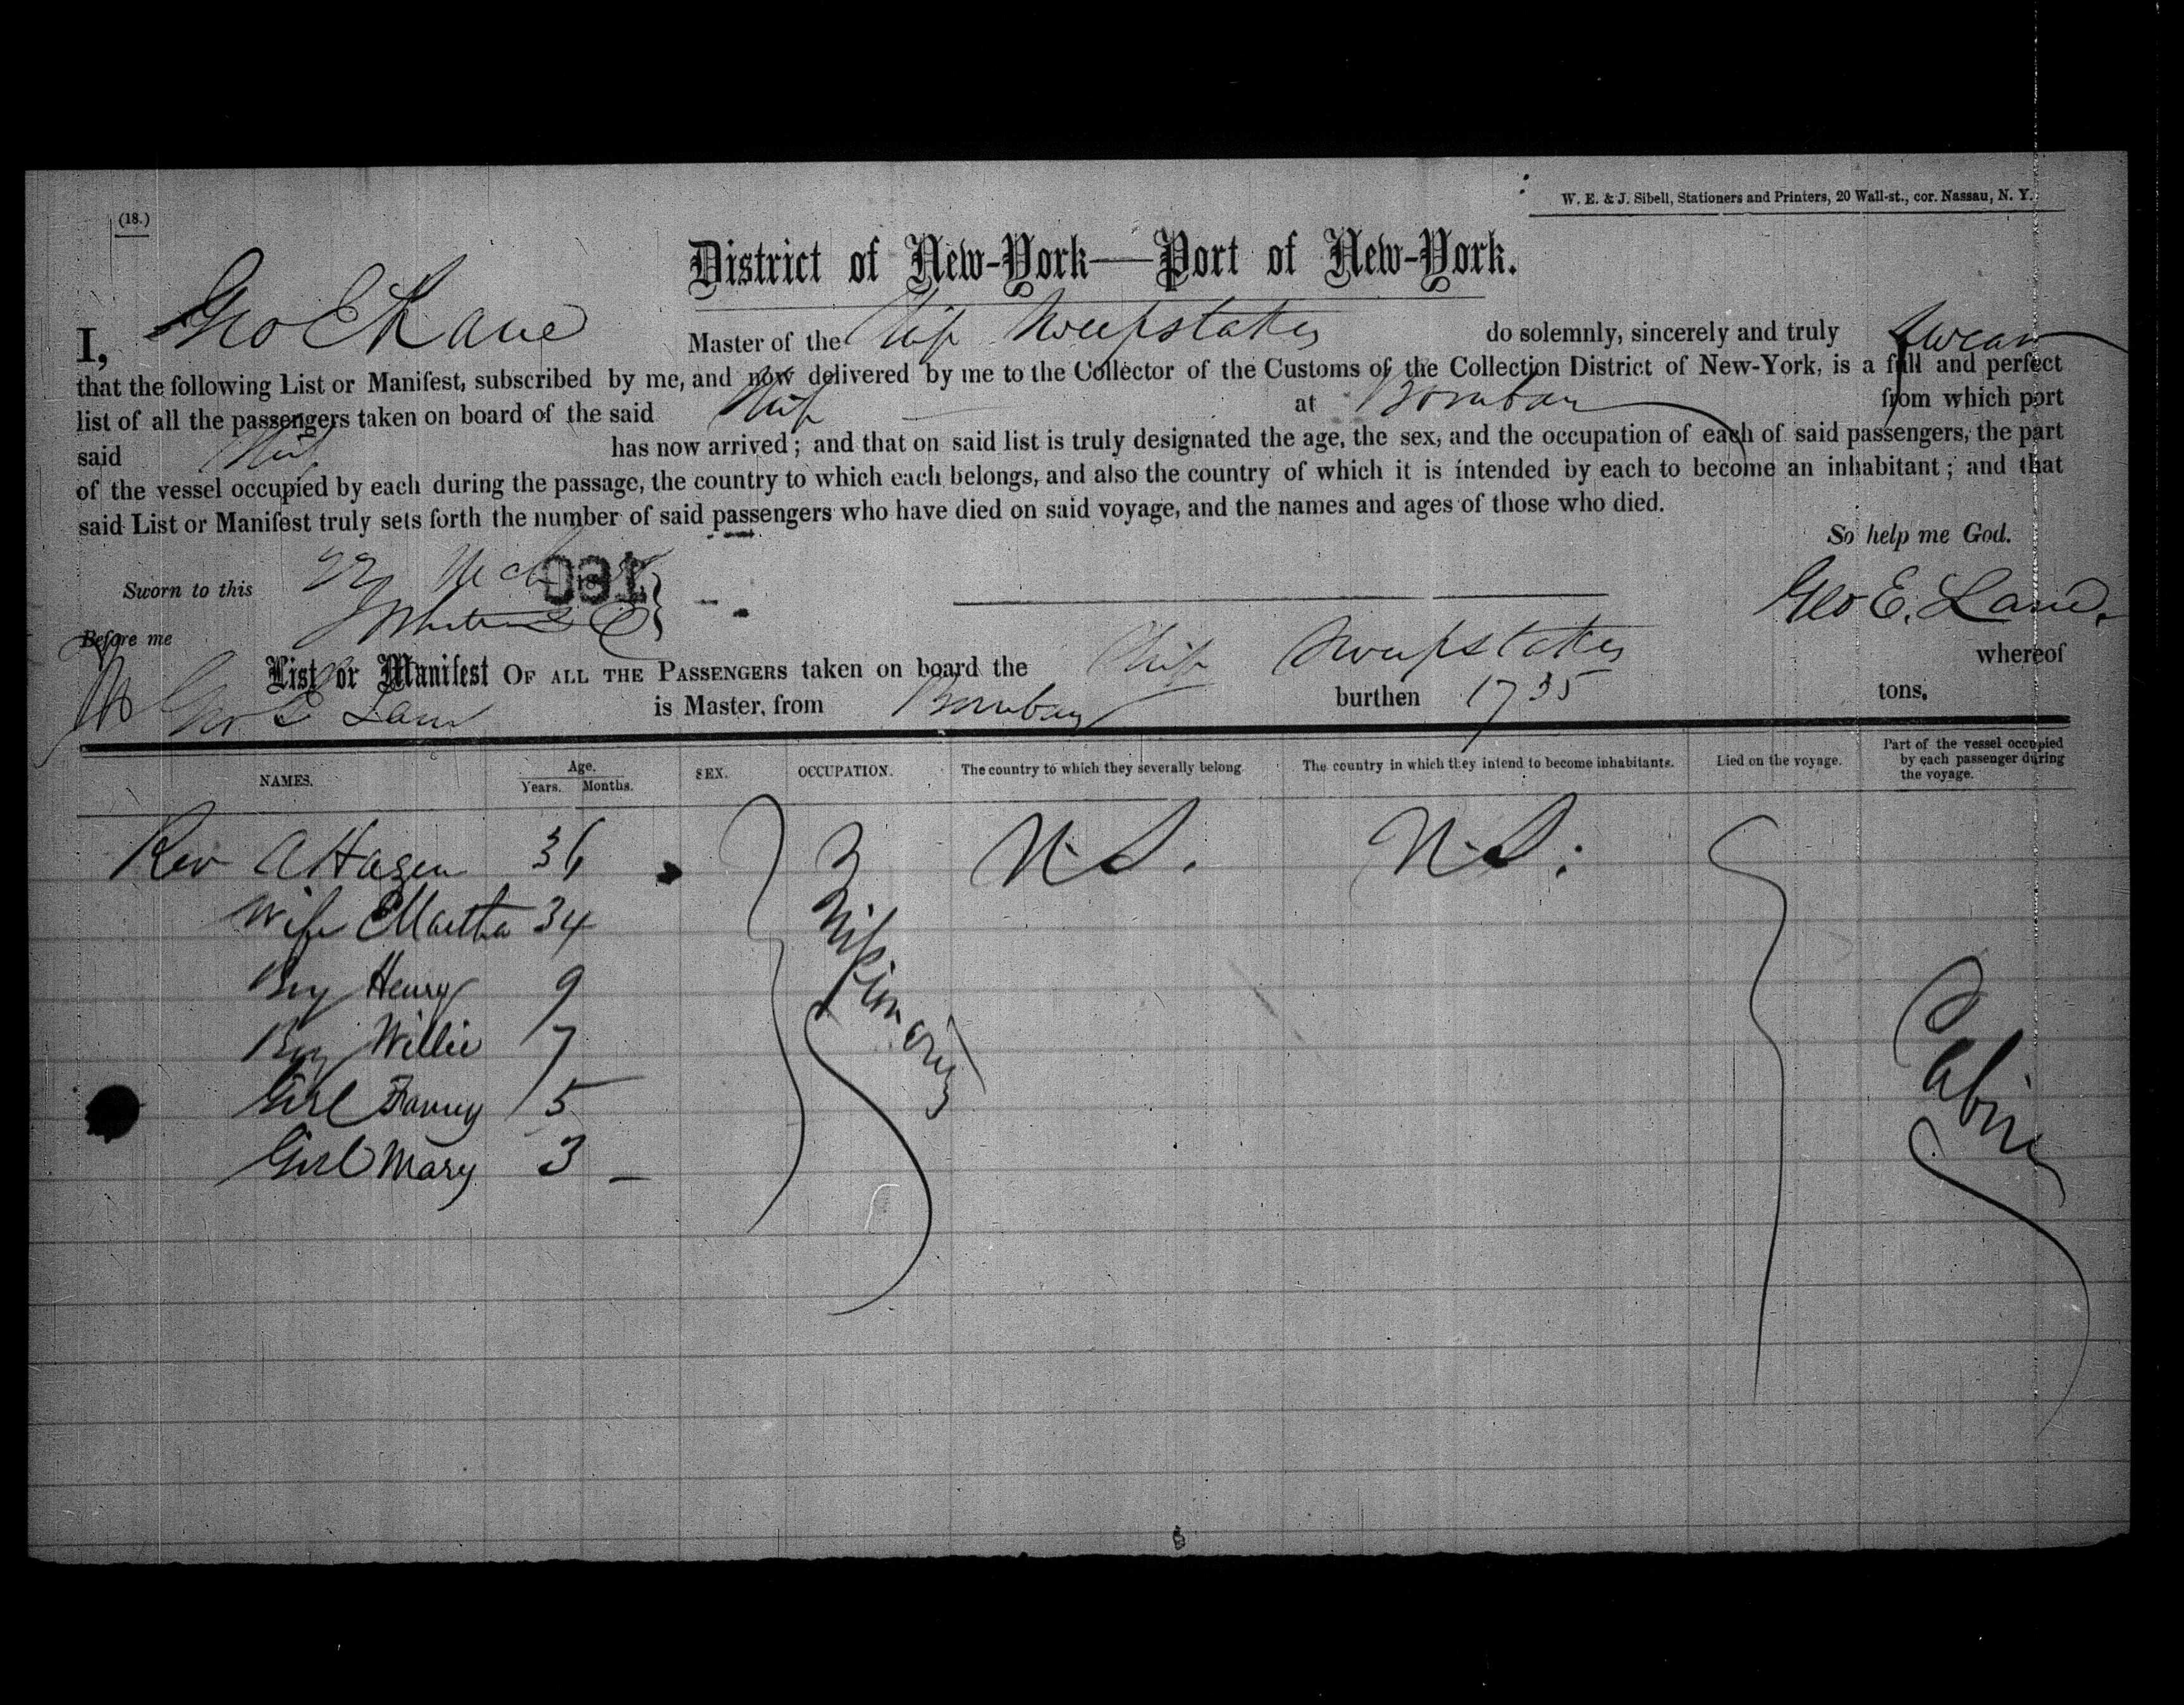 (18.)
W. E. & J. Sibell, Stationers and Printers, 20 Wall-st., cor. Nassau, N. Y.
District of New-York—Port of New-York.
I, Geo E Lane Master of the Ship Sweepstakes do solemnly, sincerely and truly swear
that the following List or Manifest, subscribed by me, and now delivered by me to the Collector of the Customs of the Collection District of New-York, is a full and perfect
list of all the passengers taken on board of the said Ship at Bombay from which port
said Ship has now arrived; and that on said list is truly designated the age, the sex, and the occupation of each of said passengers, the part
of the vessel occupied by each during the passage, the country to which each belongs, and also the country of which it is intended by each to become an inhabitant; and that
said List or Manifest truly sets forth the number of said passengers who have died on said voyage, and the names and ages of those who died.
So help me God.
Sworn to this 22 Mch
Geo E. Lane.
Before me
List or Manifest OF ALL THE PASSENGERS taken on board the Ship Sweepstakes whereof
Geo E Lane is Master, from Bombay burthen 1735 tons.
NAMES. Age. Years. Months. SEX. OCCUPATION. The country to which they severally belong. The country in which they intend to become inhabitants. Died on the voyage. Part of the vessel occupied by each passenger during the voyage.
Rev A Hazen 36 U.S. U.S.
Wife Martha 34 Missionary
Boy Henry 9
Boy Willie 7 Cabin
Girl Fanny 5
Girl Mary 3 —